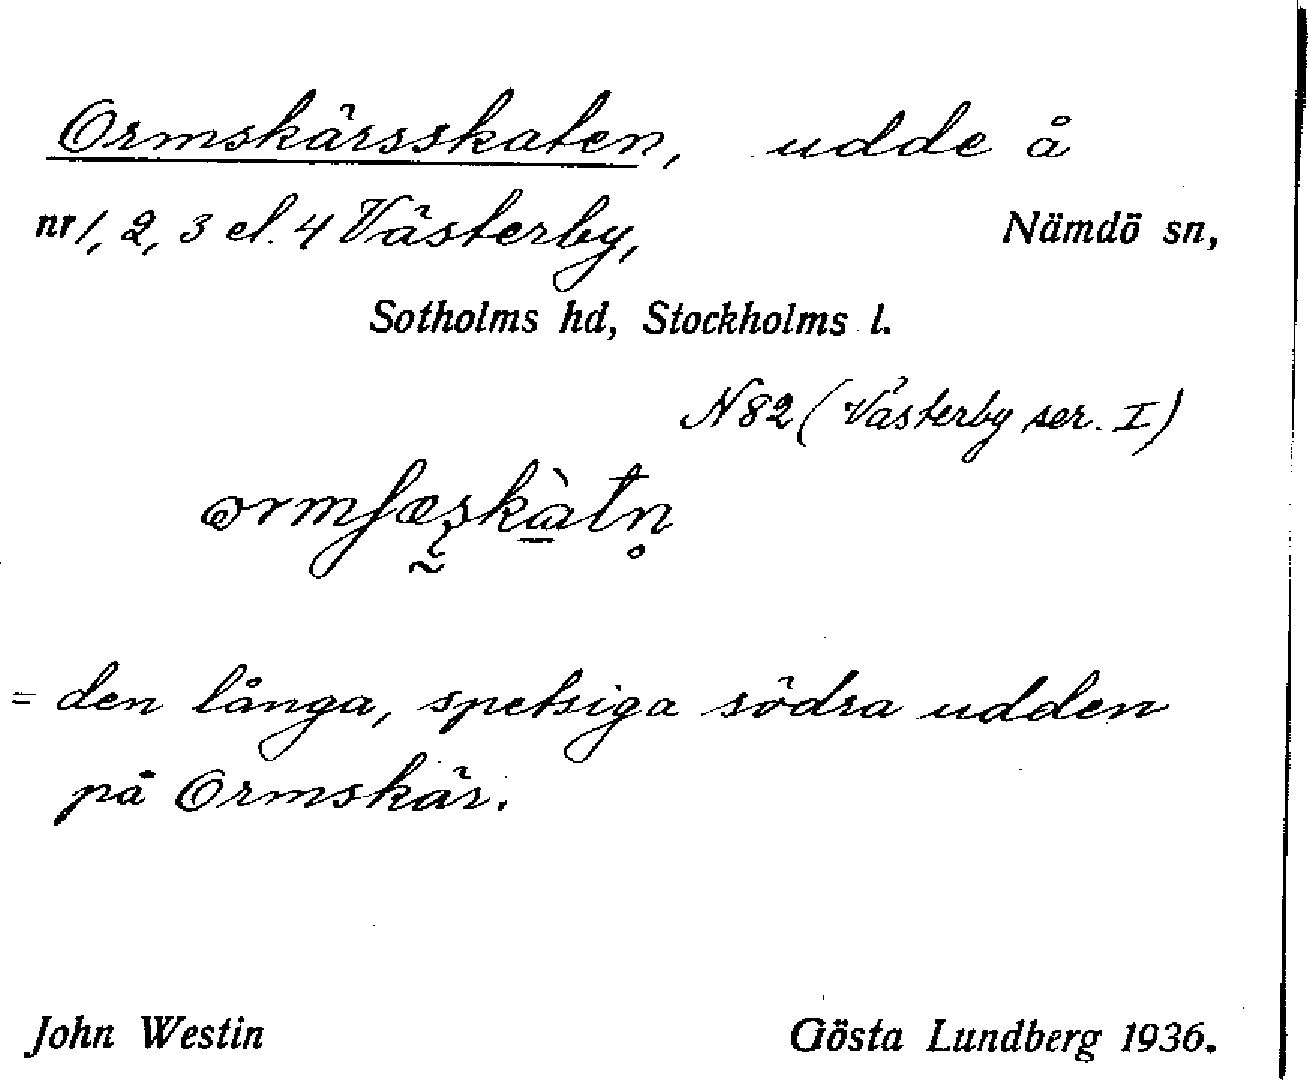 Ormskärsskaten, udde å
nr 1, 2, 3 el. 4 Västerby, Nämdö sn,
Sotholms hd, Stockholms l.
N 82 (Västerby ser. I)
= den långa, spetsiga södra udden
på Ormskär.
John Westin Gösta Lundberg 1936.